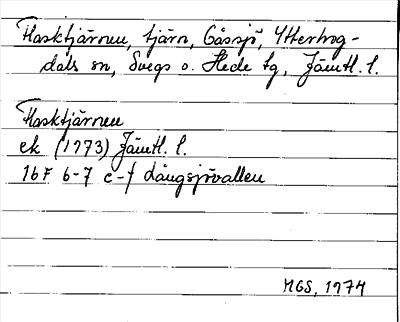 Flasktjärnen, tjärn, Gåssjö, Ytterhog-
dals sn, Svegs o. Hede tg, Jämtl. l.
Flasktjärnen
ek (1973) Jämtl. l.
16F 6-7 e-f Långsjövallen
MGS, 1974